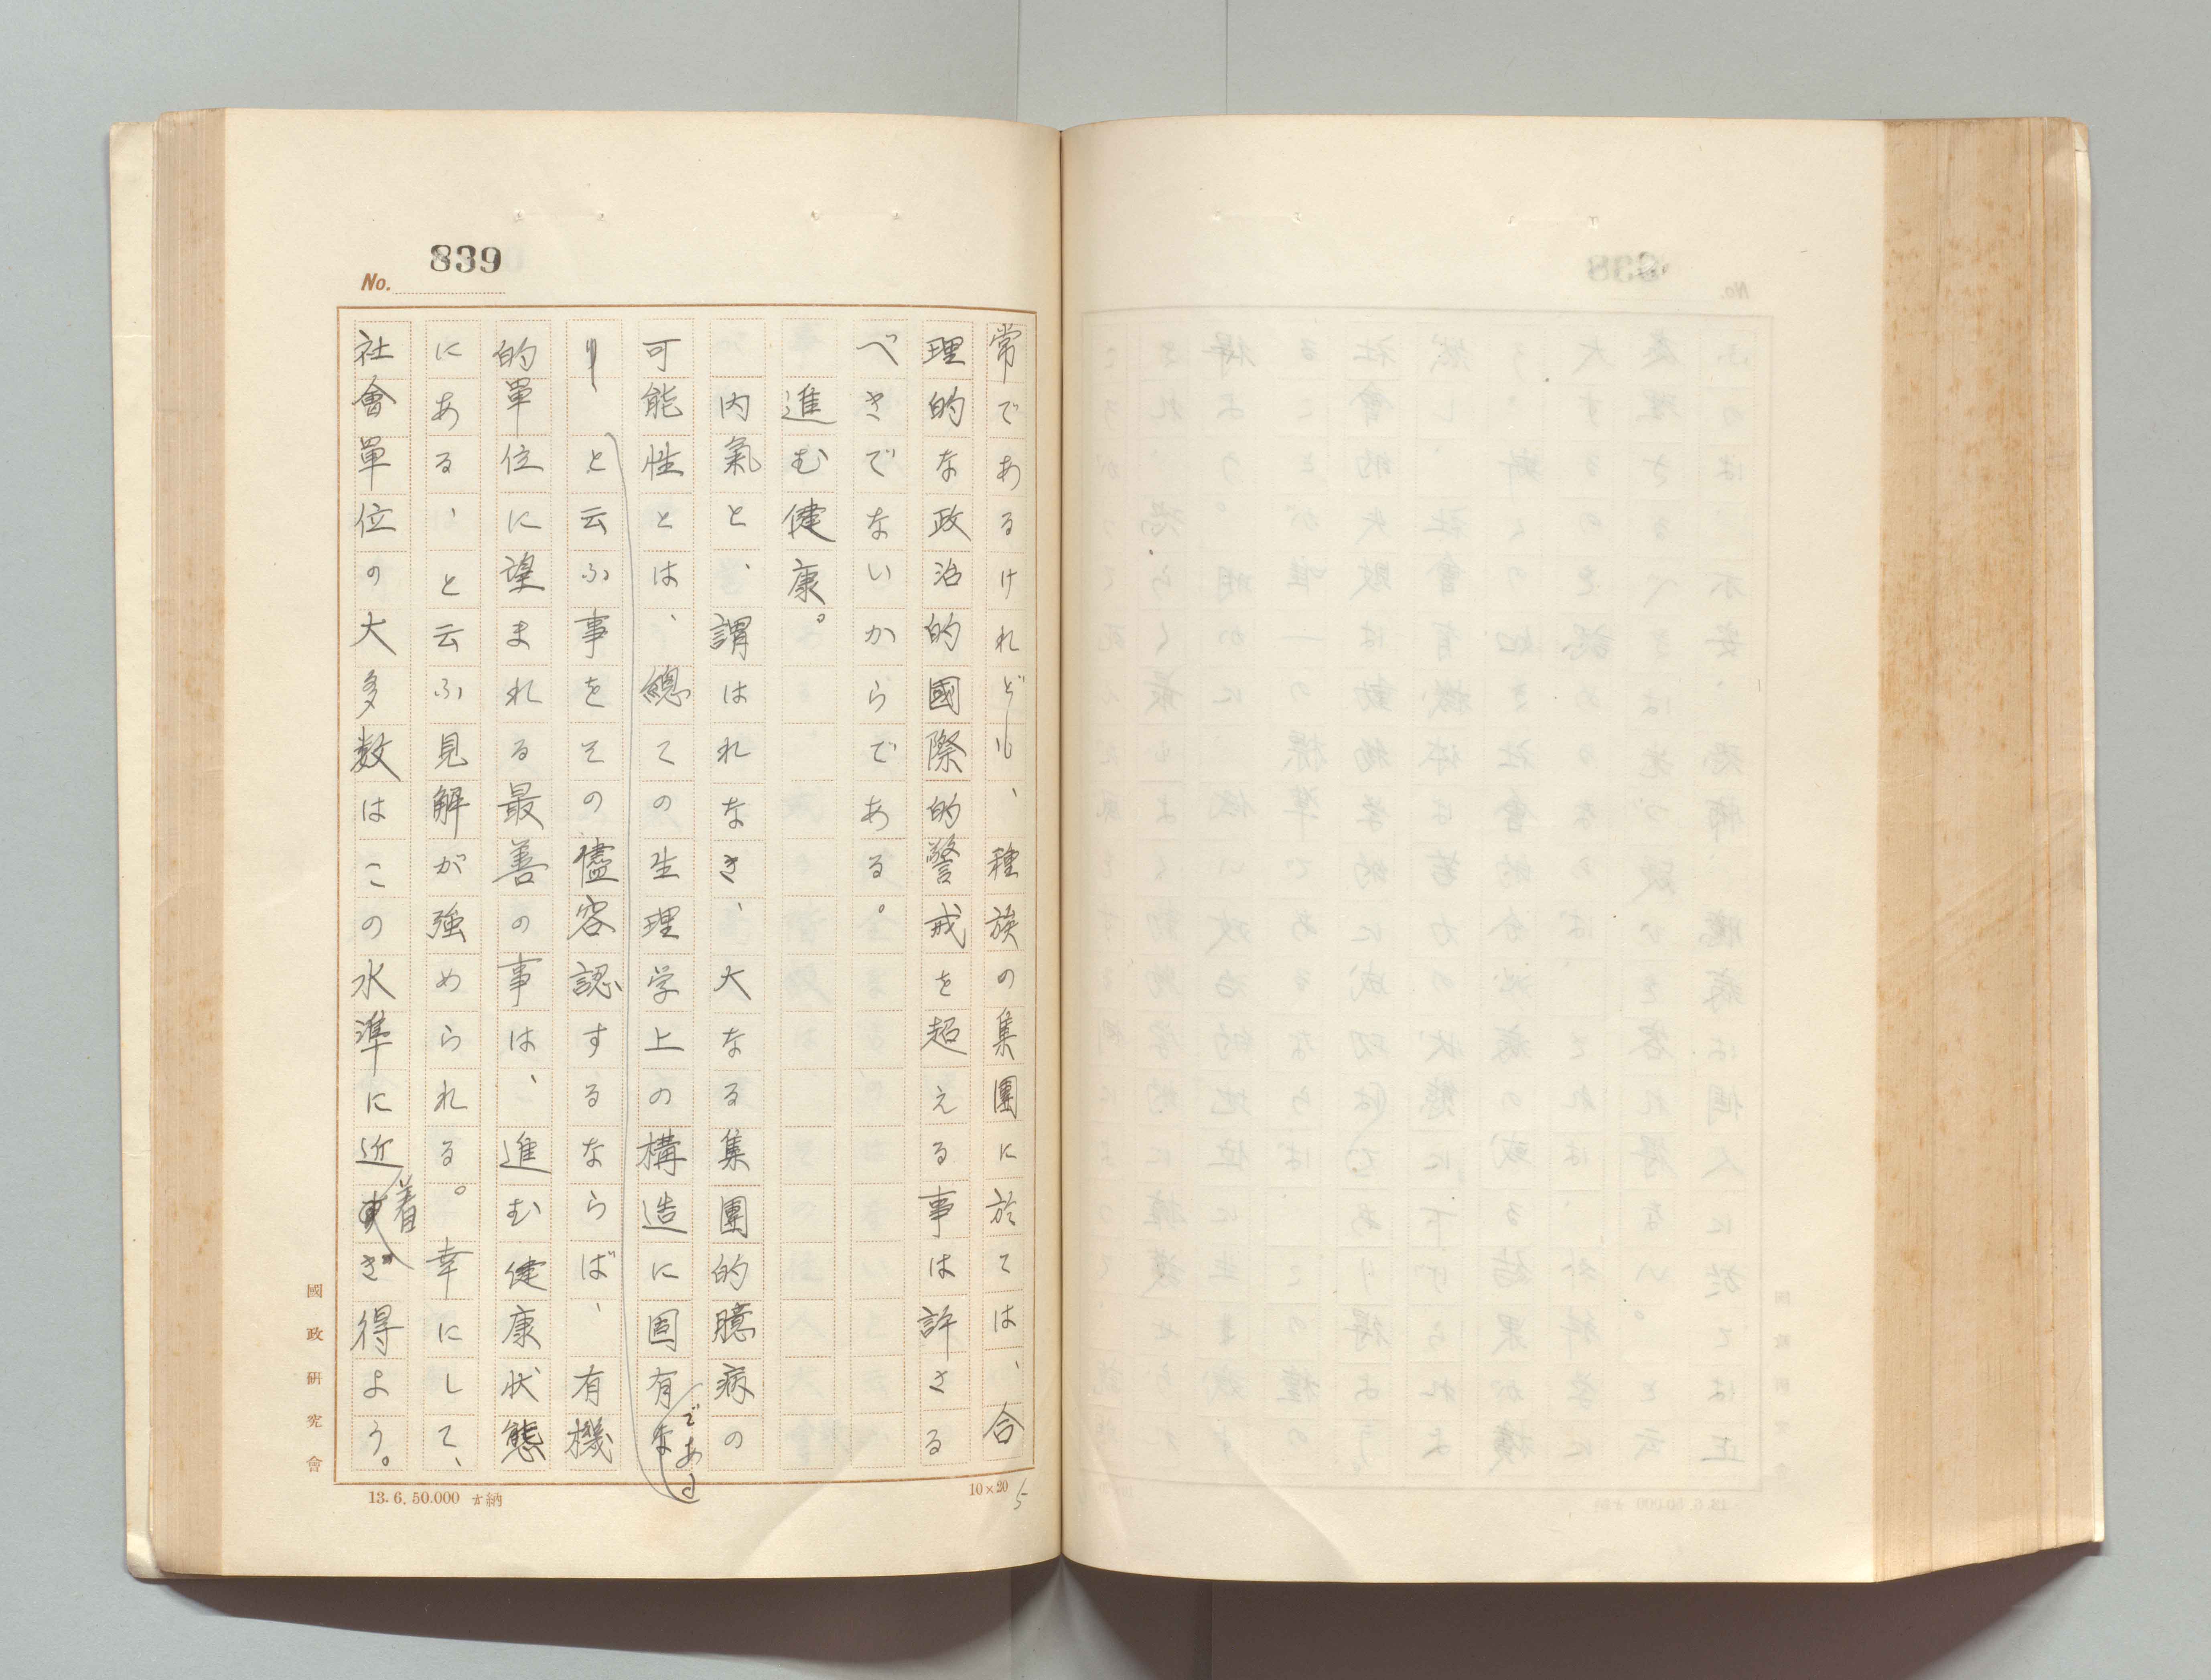 839
No.
常であるけれども、種族の集團に於ては、合
理的な政治的國際的警戒を超える事は許さる
べきでないからである。
進む健康。
内氣と、謂はれなき、大なる集團的臆病の
可能性とは、總ての生理学上の構造に固有である
と云ふ事をその儘容認するならば、有機
的單位に望まれる最善の事は、進む健康状態
にある、と云ふ見解が強められる。幸にして、
社會單位の大多数はこの水準に近着き得よう。
國政研究會
13.6.50.000 納
10×20
5